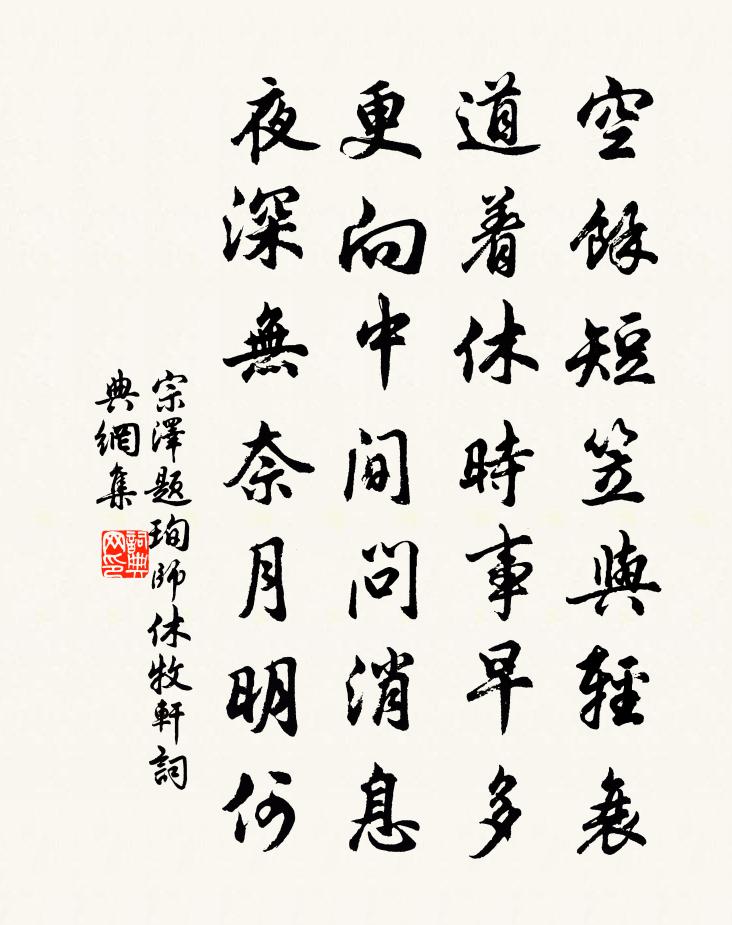 空餘短笠與輕衰
道着休時事早多
更向中間問消息
夜深無奈月明何
宗澤題珣師休牧軒詞
典網集
詞典
网印